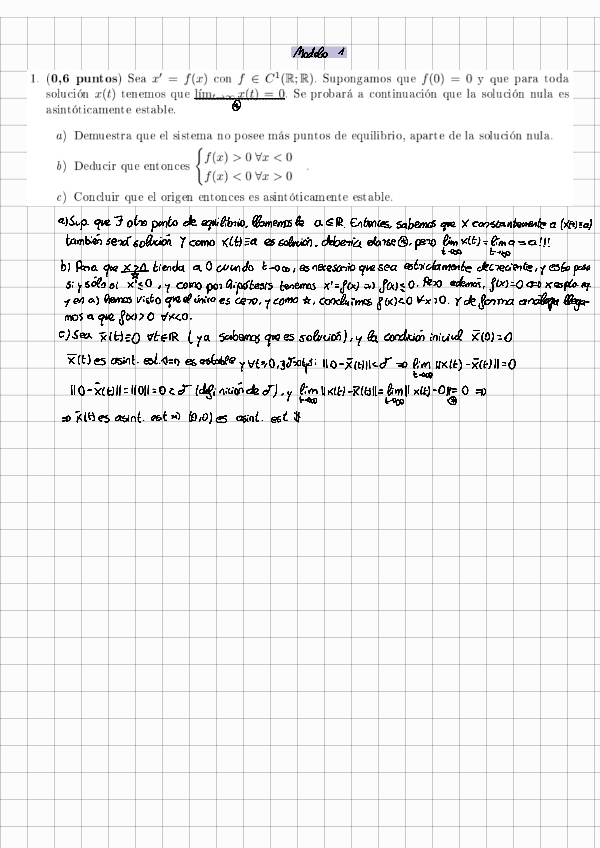 Modelo 1
1. (0,6 puntos) Sea x′ = f(x) con f ∈ C¹(ℝ;ℝ). Supongamos que f(0) = 0 y que para toda
solución x(t) tenemos que lím_{t→∞} x(t) = 0. Se probará a continuación que la solución nula es
asintóticamente estable.
a) Demuestra que el sistema no posee más puntos de equilibrio, aparte de la solución nula.
b) Deducir que entonces { f(x) > 0 ∀x < 0
f(x) < 0 ∀x > 0 .
c) Concluir que el origen entonces es asintóticamente estable.
a) Sup. que ∃ otro punto de equilibrio, llamémosle a ∈ ℝ. Entonces, sabemos que x constantemente a (x(t)≡a)
también será solución Y como x(t)≡a es solución, debería darse ⊛, pero lim_{t→∞} x(t) = lim_{t→∞} a = a!!!
b) Para que x>0 tienda a 0 cuando t→∞, es necesario que sea estrictamente decreciente, y esto pasa
si y sólo si x'≤0, y como por hipótesis tenemos x'=f(x) ⇒ f(x)≤0. Pero además, f(x)=0 ⇔ x es pto. eq.
y en a) hemos visto que el único es cero, y como ☆, concluimos f(x)<0 ∀x>0. Y de forma análoga llega-
mos a que f(x)>0 ∀x<0.
c) Sea x̄(t)≡0 ∀t∈ℝ (ya sabemos que es solución), y la condición inicial x̄(0)=0
x̄(t) es asint. est. ⇔ es estable y ∀t≥0, ∃δ>0 tq si ||0-x̄(t)||<δ ⇒ lim_{t→∞} ||x(t)-x̄(t)||=0
||0-x̄(t)||=||0||=0<δ (definición de δ), y lim_{t→∞} ||x(t)-x̄(t)||=lim_{t→∞} ||x(t)-0||=0 ⇒
⊛
⇒ x̄(t) es asint. est ⇒ (0,0) es asint. est